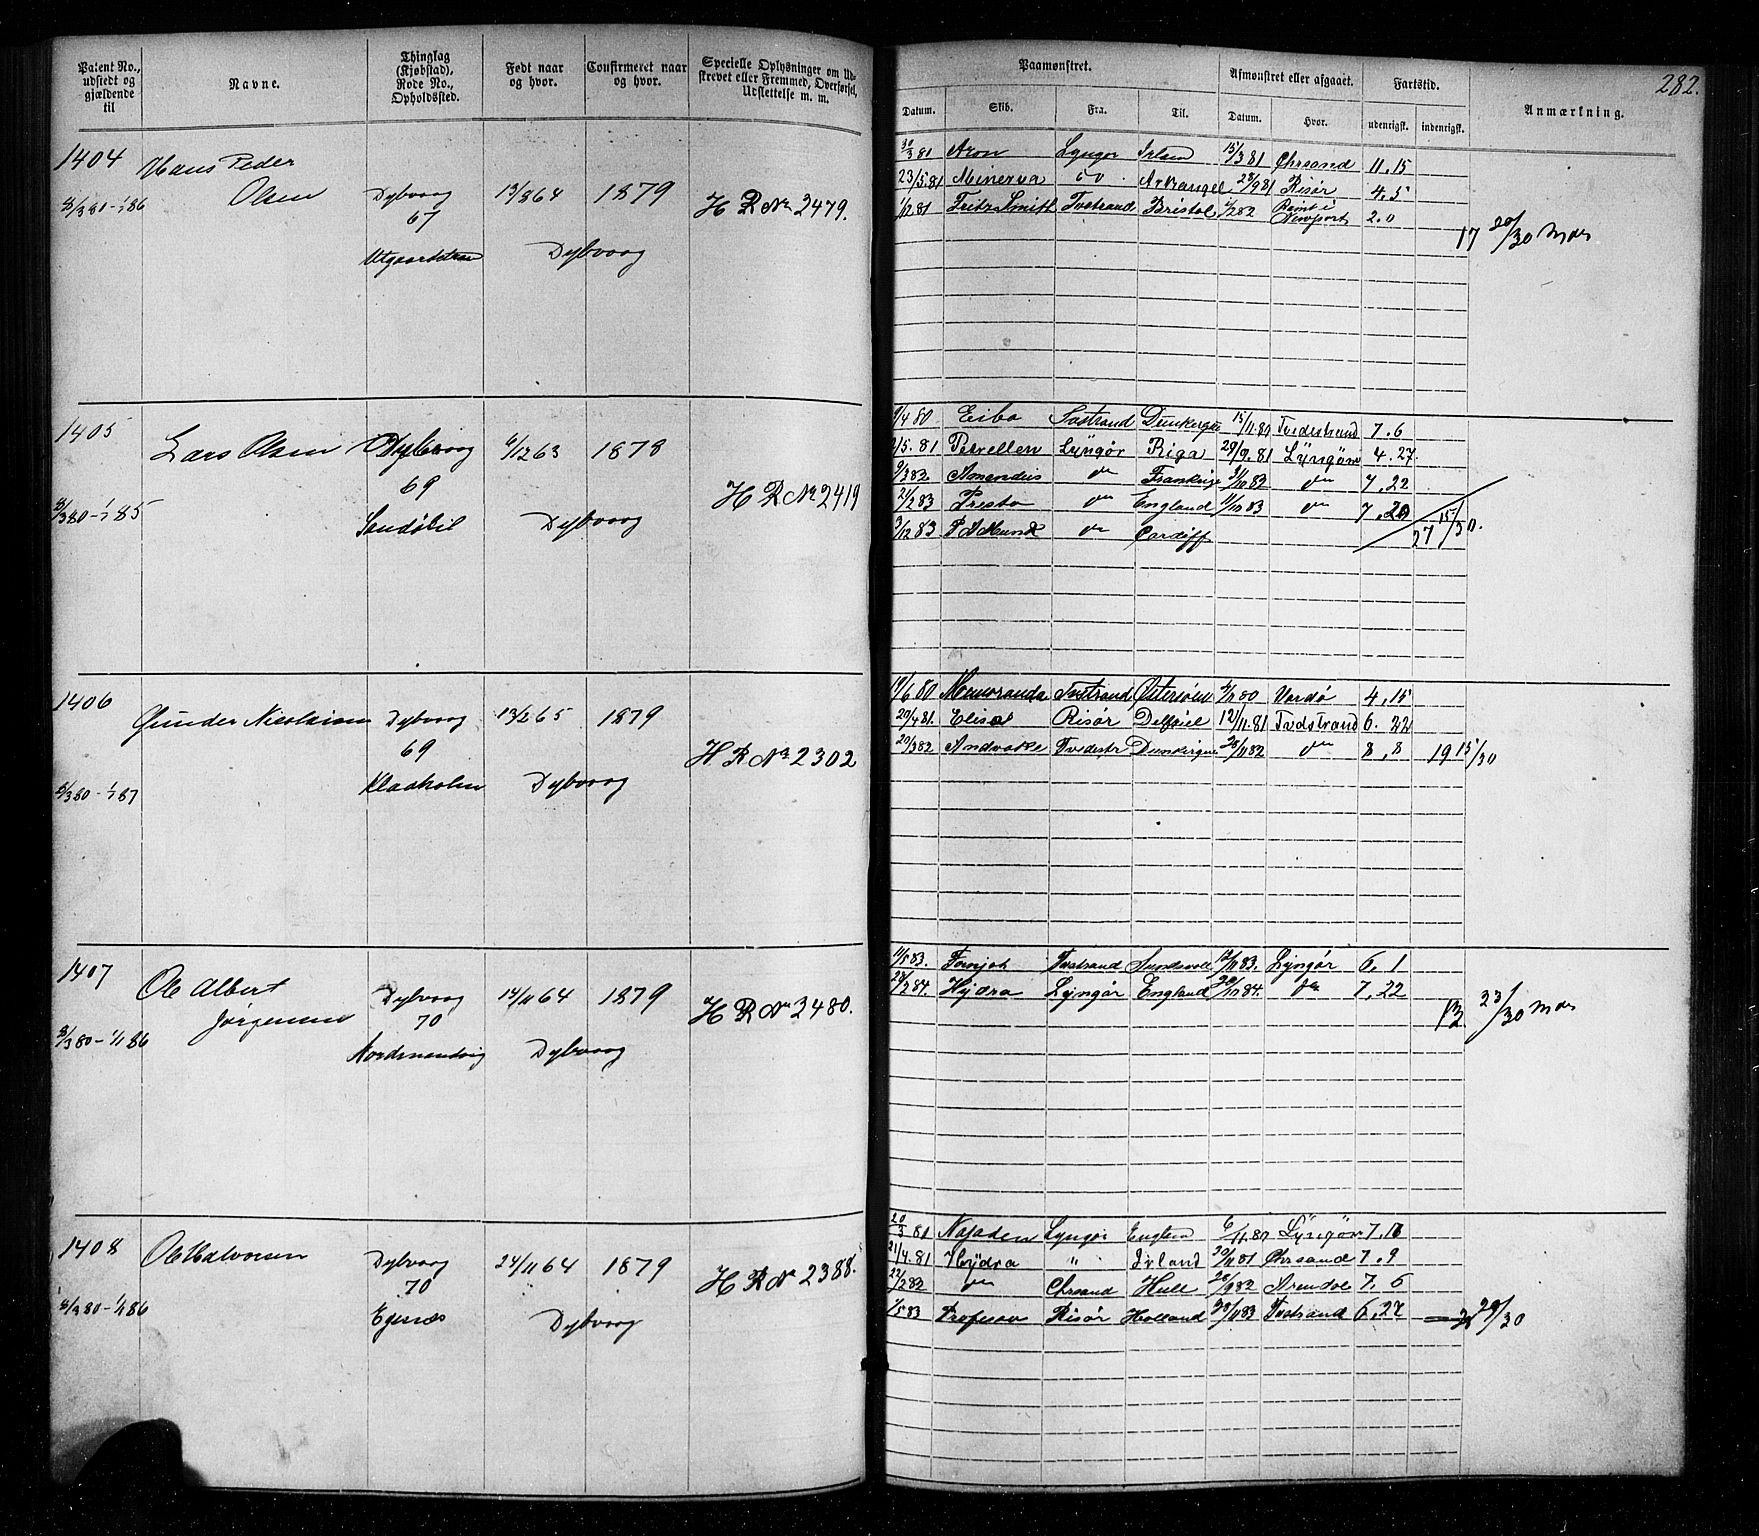 282.
Patent No., udstedt og gjældende til
Navne.
Thinglag (Kjøbstad), Rode No., Opholdssted.
Født naar og hvor.
Confirmeret naar og hvor.
Specielle Oplysninger om Udskrevet eller Fremmed, Overførsel, Udslettelse m. m.
Paamønstret.
Afmønstret eller afgaaet.
Fartstid.
Anmærkning.
Datum. Skib. Fra. Til. Datum. Hvor. udenrigsk. indenrigsk.
1404 Hans Peder Olsen
8/3 80 - 1/1 86
Dybvaag 67
13/8 64 1879
Dybvaag
H R No 2479.
30/3 81 Aron Lyngør Irland 15/3 81 Chrsand 11.15
23/5 81 Minerva do Arkangel 28/9 81 Risør 4.5
1/12 81 Fritz Smith Tvstrand Bristol 1/2 82 Rømt i Newport 2.0
17 20/30 Mdr
1405 Lars Olsen
8/3 80 - 1/1 85
Dybvaag 69
6/12 63 1878
Dybvaag
H R No 2419
9/4 80 Eibo Tvstrand Dunkerque 15/11 80 Tvedestrand 7.6
2/5 81 Pervellen Lyngør Riga 29/9 81 Lyngør 4.27
9/3 82 Amendus do Frankrige 1/11 82 do 7.22
21/2 83 Presto do England 11/10 83 do 7.20
3/12 83 P A Munch do Cardiff
27 15/30.
1406 Gunder Nicolaisen
8/3 80 - 1/1 87
Dybvaag 69
Kladholm
13/2 65 1879
Dybvaag
H R No 2302
19/6 80 Memoranda Tvstrand Østersøen 4/11 80 Vardø 4,15
20/4 81. Elise Risør Delfziel 12/11 81 Tvdstrand 6.22
20/3 82 Andvake Tvedestr Dunkerque 28/11 82 do 8,8
19 15/30
1407 Ole Albert Jørgensen
8/3 80 - 1/1 86
Dybvaag 70
14/11 64 1879
Dybvaag
H R No 2480.
11/5 83. Fornjot Tvstrand Sundsvall 12/11 83. Lyngør 6,1
28/2 84. Hydra Lyngør England 20/10 84. do 7,22
13 23/30 Mdr
1408 Ole Halvorsen
8/3 80 - 1/1 86
Dybvaag 70
Egenæs
24/11 64 1879
Dybvaag
H R No 2388.
20/3 81 Najaden Lyngør England 6/11 80 Lyngør 7.10
21/4 81 Hydra " Irland 30/11 81 Chrsand 7.9
22/2 82 do Chrsand Hull 28/9 82 Arendal 7.6
1/5 83 Profesor Risør Holland 28/11 83 Tvstrand 6,27
29/30